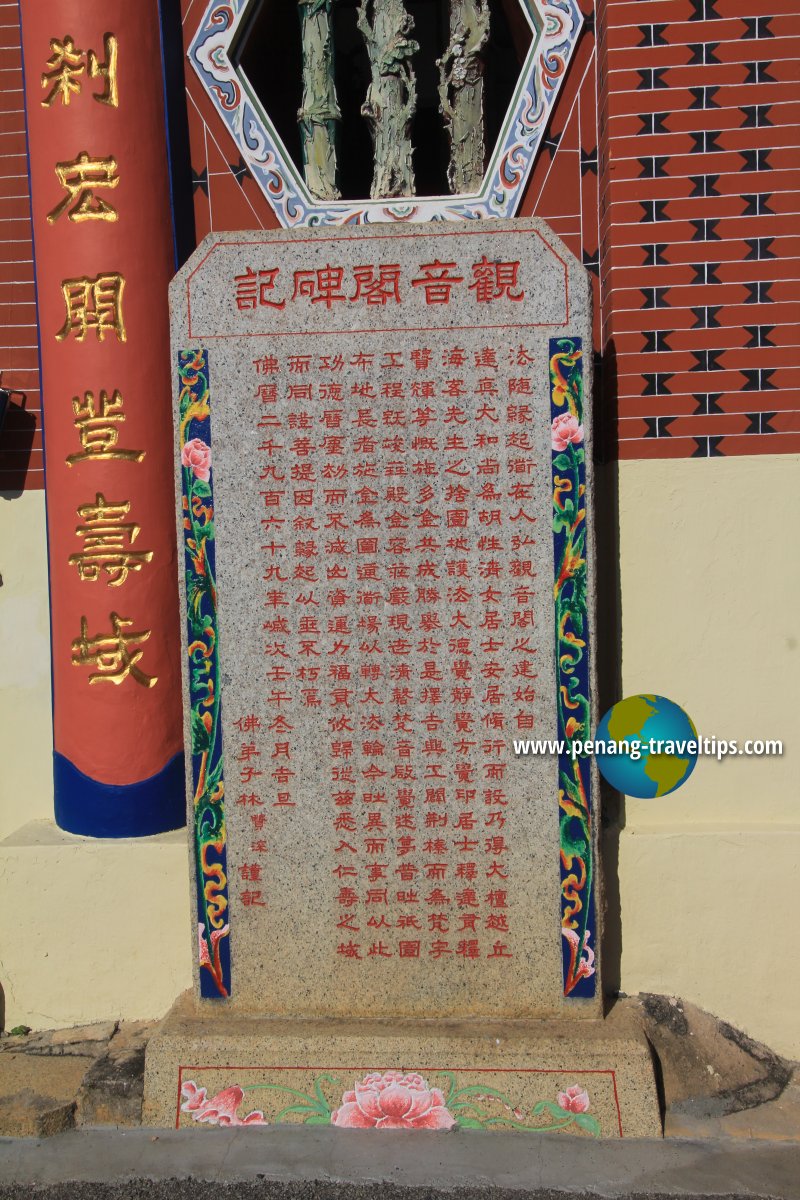 觀音閣碑記
法随緣起衜在人弘觀音閣之建始自
達真大和尚為胡性濟女居士安居脩行而設乃得大檀越丘
海客先生之捨園地護法大德覺靜覺方覺印居士釋達貫釋
賢輝等慨施多金共成勝舉於是擇吉興工闢荆榛而為梵宇
工程既竣殿金容莊嚴現世清磬梵音啟覺迷夢昔时祇園
布地長者施金為圓通衜場以轉大法輪今时異而事同以此
功德曆塵劫而不減資運力福攸歸從茲悉入仁壽之域
而同證菩提因叙緣起以垂不朽焉
佛曆二千九百六十九年歲次壬午冬月吉旦
佛弟子林謹記
刹宏開豈壽域
www.penang-traveltips.com